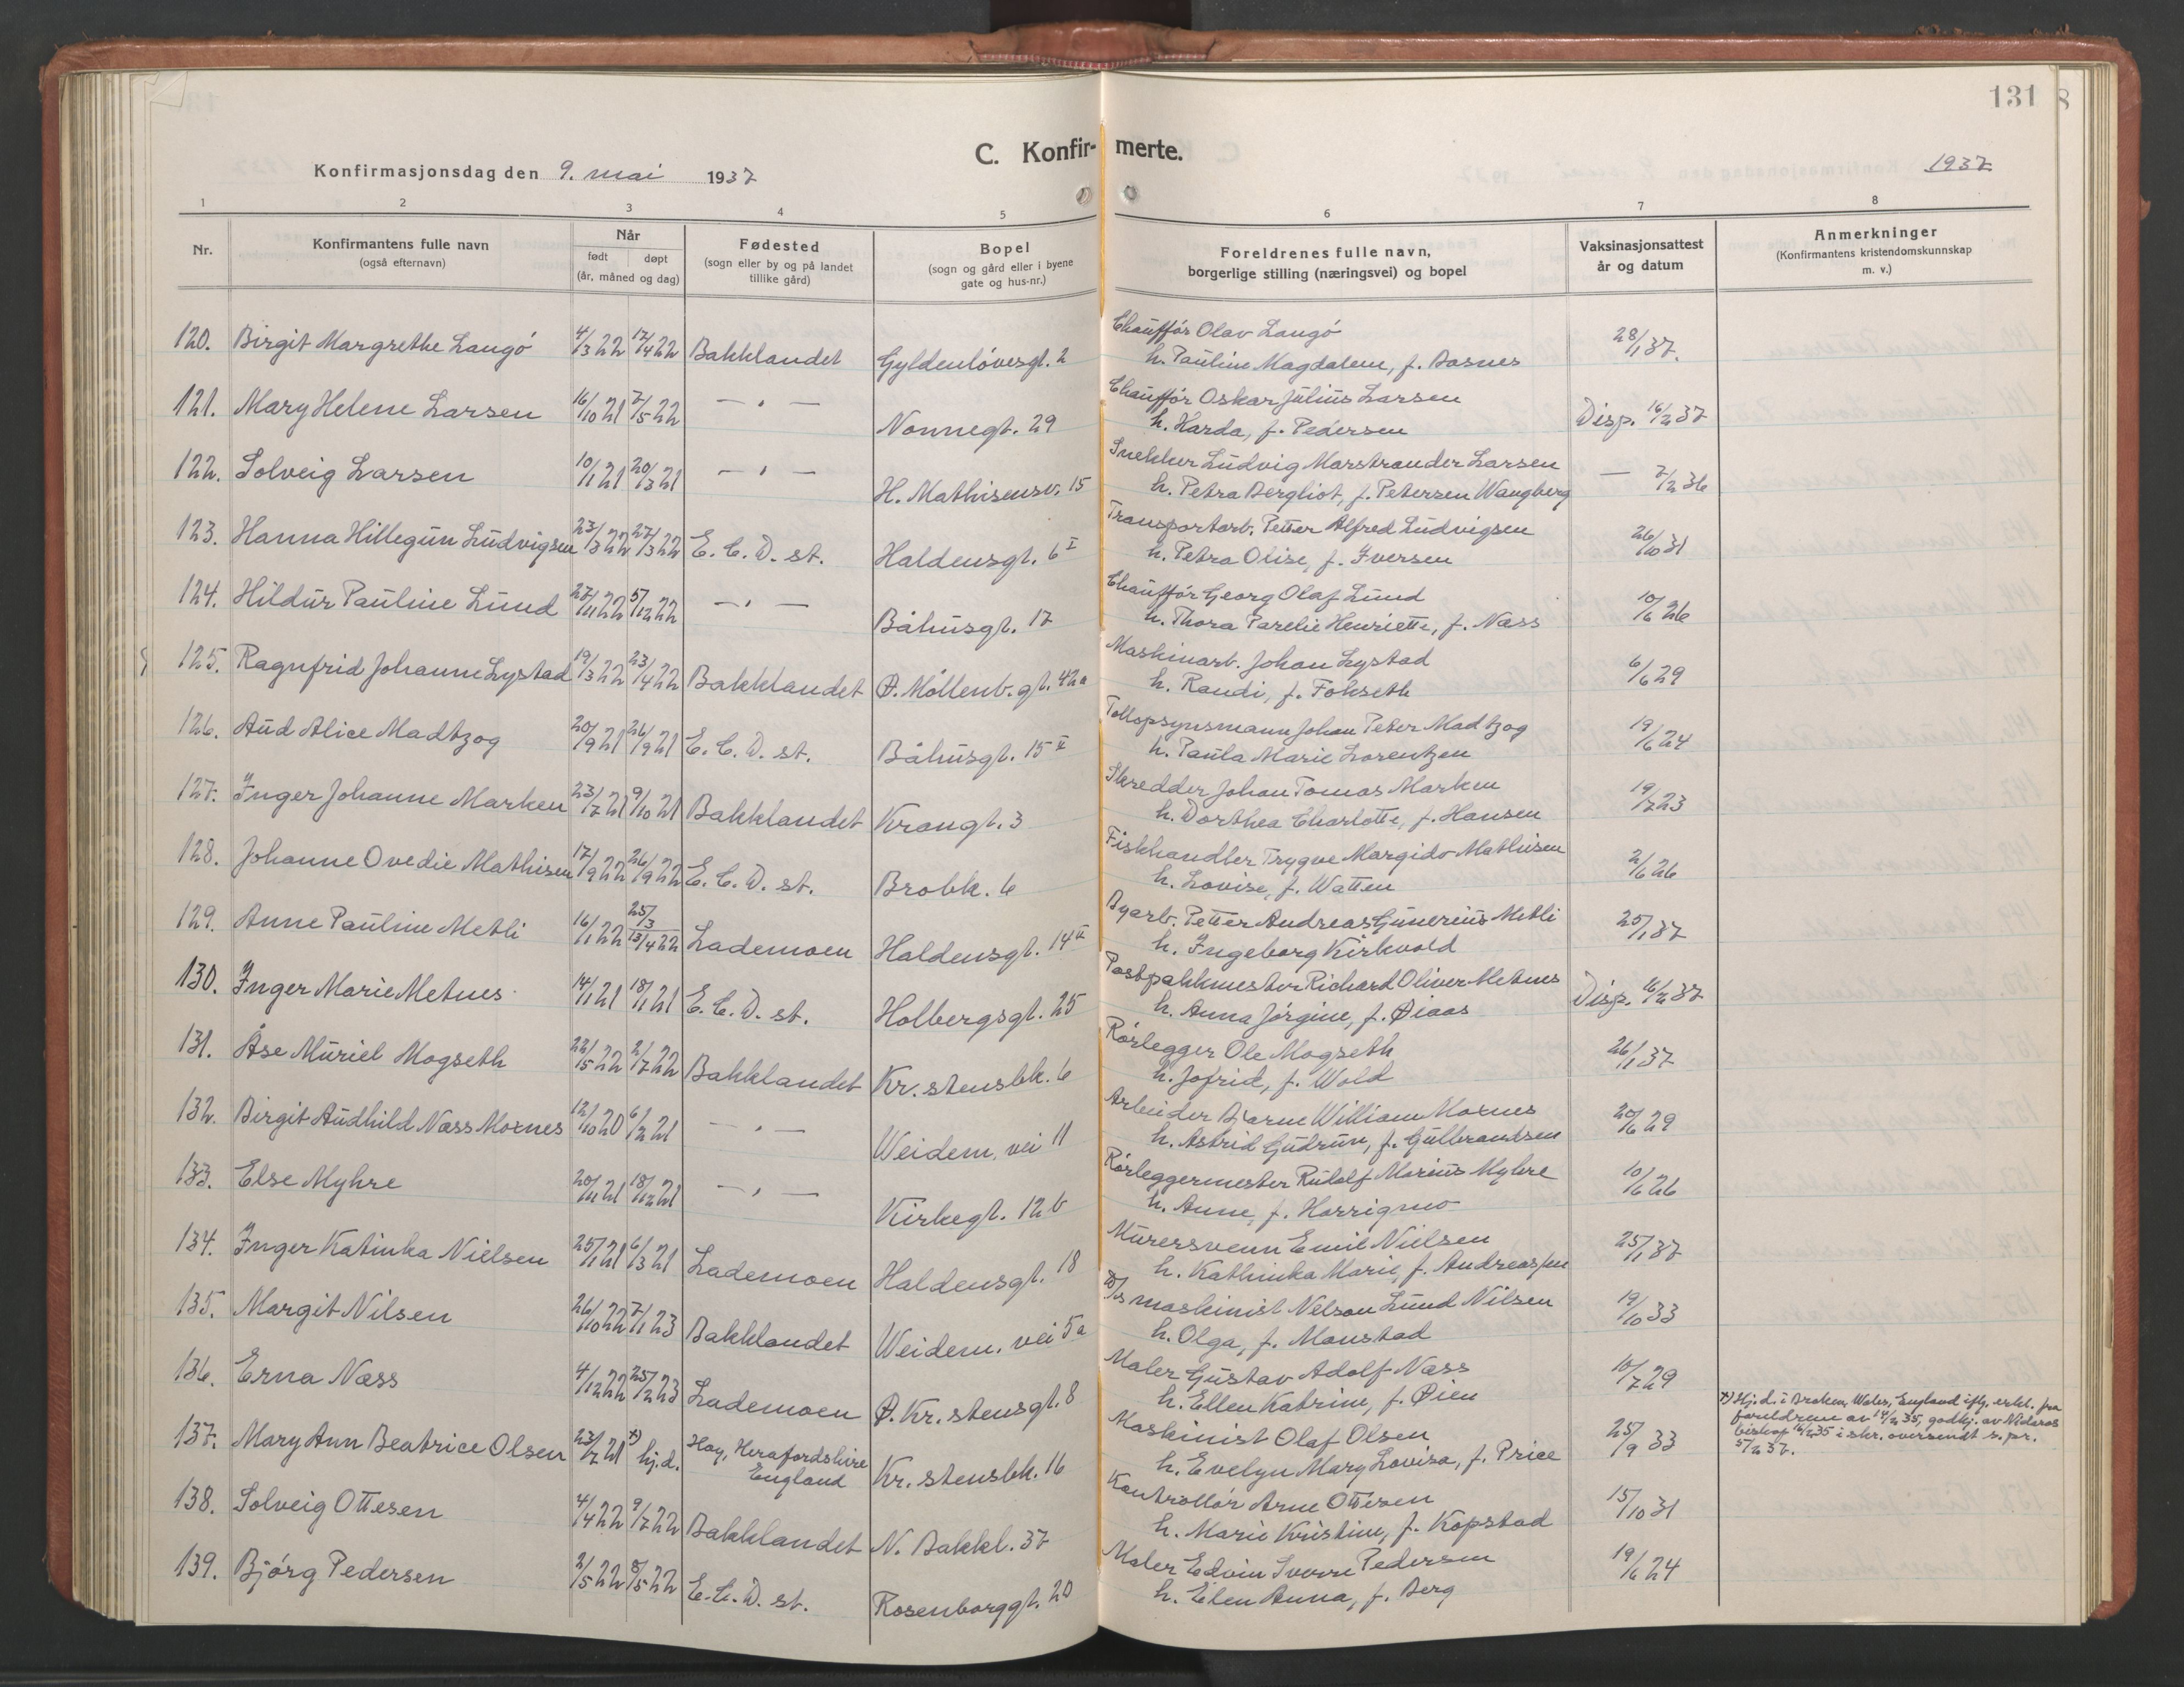 131
8
C. Konfirmerte.
Konfirmasjonsdag den 9. mai 1937
1937
1 2 3 4 5 6 7 8
Nr.
Konfirmantens fulle navn
(også efternavn)
Når
født døpt
(år, måned og dag)
Fødested
(sogn eller by og på landet
tillike gård)
Bopel
(sogn og gård eller i byene
gate og hus-nr.)
Foreldrenes fulle navn,
borgerlige stilling (næringsvei) og bopel
Vaksinasjonsattest
år og datum
Anmerkninger
(Konfirmantens kristendomskunnskap
m. v.)
120. Birgit Margrethe Langó 4/3 22 17/4 22 Bakklandet Gyldenlóvesgt. 2 Chauffór Olav Langó 28/1 37.
h. Pauline Magdalene, f. Aasnes
121. Mary Helene Larsen 16/10 21 7/5 22 — " — Nonnegt. 29 Chauffór Oskar Julius Larsen Disp. 16/2 37
h. Harda, f. Pedersen
122. Solveig Larsen 10/1 21 20/3 21 — " — H. Mathisensv. 15 Snekker Ludvig Marstrander Larsen — 7/2 36
h. Petra Bergliot, f. Petersen Wangberg
123. Hanna Hillegun Ludvigsen 23/3 22 27/3 22 E. C. D. st. Haldensgt. 6 I Transportarb. Petter Alfred Ludvigsen 26/10 31
h. Petra Olise, f. Iversen
124. Hildur Pauline Lund 27/11 22 5/12 22 — " — Båhusgt. 17 Chauffór Georg Olaf Lund 10/6 26
h. Thora Parelie Henriette, f. Næss
125. Ragnfrid Johanne Lystad 19/3 22 23/4 22 Bakklandet Ø. Móllenb. gt. 42a Maskinarb. Johan Lystad 6/6 29
h. Randi, f. Fokseth
126. Aud Alice Madtzog 20/9 21 26/9 21 E. C. D. st. Båhusgt. 15 II Tollopsynsmann Johan Peter Madtzog 19/6 24
h. Paula Marie Lorentzen
127. Inger Johanne Marken 23/7 21 9/10 21 Bakklandet Krongt. 3 Skredder Johan Tomas Marken 19/7 23
h. Dorthea Charlotte, f. Hansen
128. Johanne Ovedie Mathisen 17/9 22 26/9 22 E. C. D. st. Brobk. 6 Fiskhandler Trygve Margido Mathisen 2/6 26
h. Lovise, f. Watten
129. Anne Pauline Metli 16/1 22 25/3 13/4 22 Lademoen Haldensgt. 14 II Byarb. Petter Andreas Gunerius Metli 25/1 37
h. Ingeborg Kirkvold
130. Inger Marie Metnes 14/1 21 18/1 21 E. C. D. st. Holbergsgt. 25 Postpakkmester Richard Oliver Metnes Disp. 16/2 37
h. Anna Jórgine, f. Øiaas
131. Åse Muriel Mogseth 22/5 22 2/7 22 Bakklandet Kr. stensbk. 6 Rórlegger Ole Mogseth 26/1 37
h. Jofrid, f. Wold
132. Birgit Audhild Næss Moxnes 12/10 20 6/2 21 — " — Weidem. vei 11 Arbeider Bjarne William Moxnes 20/6 29
h. Astrid Gudrun, f. Gulbrandsen
133. Else Myhre 20/11 21 18/12 21 — " — Kirkegt. 12 b Rórleggermester Rudolf Marius Myhre 10/6 26
h. Anne, f. Horrigmo
134. Inger Katinka Nielsen 25/1 21 6/3 21 Lademoen Haldensgt. 18 Murersvenn Emil Nielsen 25/1 37
h. Kathinka Marie, f. Andreassen
135. Margit Nilsen 26/10 22 7/1 23 Bakklandet Weidem. vei 5a D/S maskinist Nelson Lund Nilsen 19/10 33
h. Olga, f. Monstad
136. Erna Næss 4/12 22 25/2 23 Lademoen Ø. Kr. stensgt. 8 Maler Gustav Adolf Næss 10/7 29
h. Ellen Katrine, f. Øien
137. Mary Ann Beatrice Olsen 23/7 21 x) hj.d. Hay, Herafordshire Kr. stensbk. 16 Maskinist Olaf Olsen 25/9 33
England
h. Evelyn Mary Lovisa, f. Price
x) Hj.d. i Wales, England iflg. erkl. fra
foreldrene av 14/2 35, godkj. av Nidaros
biskop 16/2 35 i skr. oversendt s. pr.
5/2 37.
138. Solveig Ottesen 4/4 22 9/7 22 Bakklandet N. Bakkl. 37 Kontrollór Arne Ottesen 15/10 31
h. Marie Kristine, f. Kopstad
139. Bjórg Pedersen 2/5 22 8/5 22 E. C. D. st. Rosenborggt. 20 Maler Edvin Sverre Pedersen 19/6 24
h. Elen Anna, f. Berg